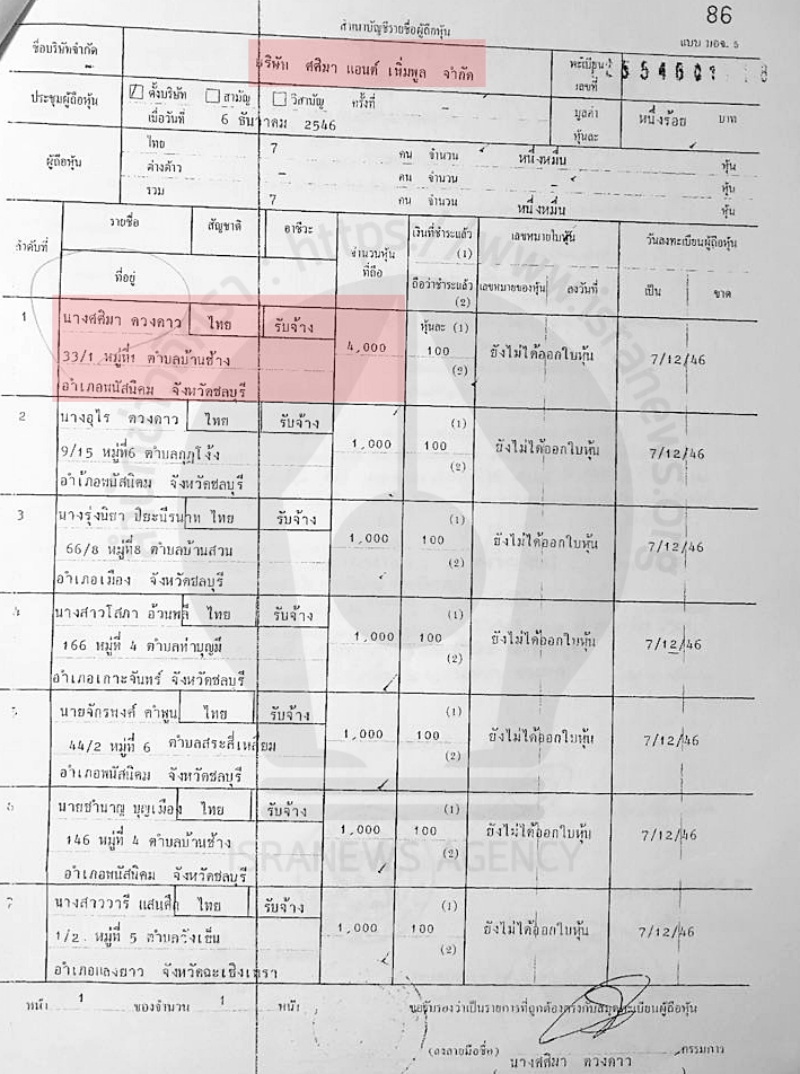 86
สำเนาบัญชีรายชื่อผู้ถือหุ้น
แบบ บอจ. 5
ชื่อบริษัทจำกัด บริษัท ศศิมา แอนด์ เพิ่มพูล จำกัด ทะเบียน
เลขที่
ประชุมผู้ถือหุ้น ตั้งบริษัท สามัญ วิสามัญ ครั้งที่ -
เมื่อวันที่ 6 ธันวาคม 2546
มูลค่า หุ้นละ หนึ่งร้อย บาท
ผู้ถือหุ้น ไทย 7 คน จำนวน หนึ่งหมื่น หุ้น
ต่างด้าว - คน จำนวน - หุ้น
รวม 7 คน จำนวน หนึ่งหมื่น หุ้น
ลำดับที่ รายชื่อ สัญชาติ อาชีวะ จำนวนหุ้นที่ถือ เงินที่ชำระแล้ว (1) เลขหมายใบหุ้น วันลงทะเบียนผู้ถือหุ้น
ที่อยู่ ถือว่าชำระแล้ว (2) เลขหมายของหุ้น ลงวันที่ เป็น ขาด
1 นางศศิมา ดวงดาว ไทย รับจ้าง หุ้นละ (1)
33/1 หมู่ที่1 ตำบลบ้านช้าง 4,000 100 ยังไม่ได้ออกใบหุ้น 7/12/46
อำเภอพนัสนิคม จังหวัดชลบุรี (2)
2 นางอุไร ดวงดาว ไทย รับจ้าง (1)
9/15 หมู่ที่6 ตำบลกุฎโง้ง 1,000 100 ยังไม่ได้ออกใบหุ้น 7/12/46
อำเภอพนัสนิคม จังหวัดชลบุรี (2)
3 นางรุ่งนิยา ปิยะนีรนาท ไทย รับจ้าง (1)
66/8 หมู่ที่8 ตำบลบ้านสวน 1,000 100 ยังไม่ได้ออกใบหุ้น 7/12/46
อำเภอเมือง จังหวัดชลบุรี (2)
4 นางสาวโสภา อ้วนพลี ไทย รับจ้าง (1)
166 หมู่ที่ 4 ตำบลท่าบุญมี 1,000 100 ยังไม่ได้ออกใบหุ้น 7/12/46
อำเภอเกาะจันทร์ จังหวัดชลบุรี (2)
5 นายจักรพงศ์ คำพูน ไทย รับจ้าง (1)
44/2 หมู่ที่ 6 ตำบลสระสี่เหลี่ยม 1,000 100 ยังไม่ได้ออกใบหุ้น 7/12/46
อำเภอพนัสนิคม จังหวัดชลบุรี (2)
6 นายชำนาญ บุญเมือง ไทย รับจ้าง (1)
146 หมู่ที่ 4 ตำบลบ้านช้าง 1,000 100 ยังไม่ได้ออกใบหุ้น 7/12/46
อำเภอพนัสนิคม จังหวัดชลบุรี (2)
ISRANEWS AGENCY
7 นางสาววารี แสนศึก ไทย รับจ้าง (1)
1/2 หมู่ที่ 5 ตำบลวังเย็น 1,000 100 ยังไม่ได้ออกใบหุ้น 7/12/46
อำเภอแปลงยาว จังหวัดฉะเชิงเทรา (2)
หน้า 1 ของจำนวน 1 หน้า ขอรับรองว่าเป็นรายการที่ถูกต้องตรงกับสมุดทะเบียนผู้ถือหุ้น
(ลงลายมือชื่อ) กรรมการ
นางศศิมา ดวงดาว